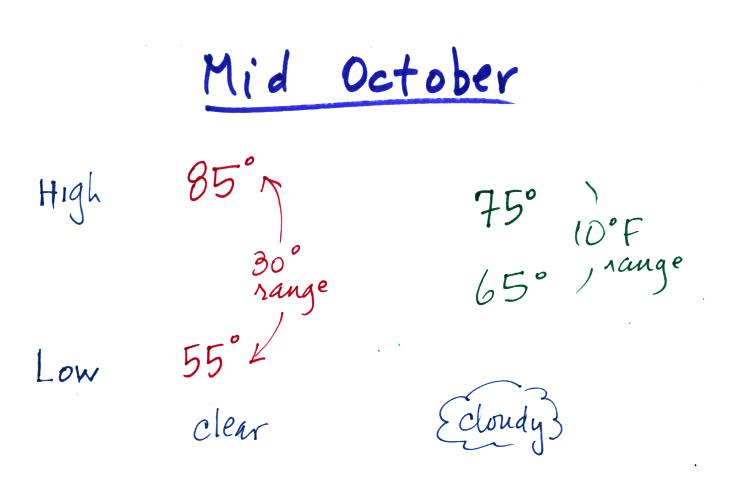 Mid October
High 85° 75°
30° range 10°F range
65°
Low 55°
clear cloudy